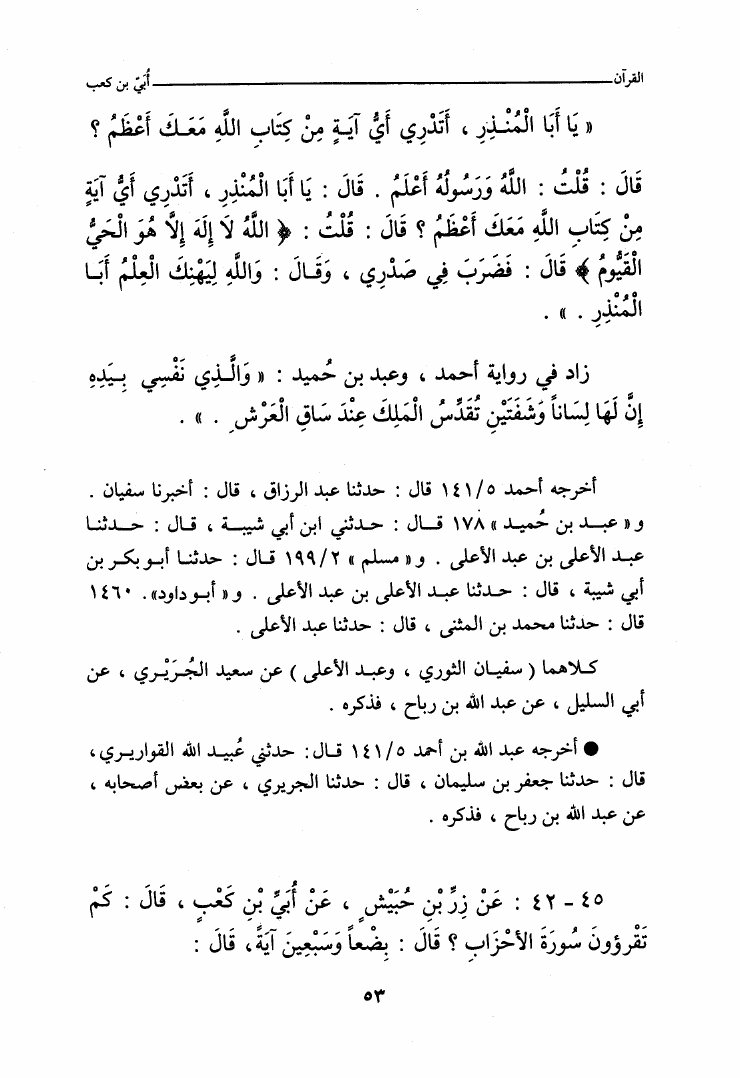 القرآن ــــــــــ أُبَيّ بن كعب
« يَا أَبَا الْمُنْـذِرِ ، أَتَدْرِي أَيُّ آيَـةٍ مِنْ كِتَابِ اللَّهِ مَعَـكَ أَعْظَمُ ؟
قَالَ : قُلْتُ : اللَّهُ وَرَسُولُهُ أَعْلَمُ . قَالَ : يَا أَبَا الْمُنْذِرِ ، أَتَدْرِي أَيُّ آيَةٍ
مِنْ كِتَابِ اللَّهِ مَعَكَ أَعْظَمُ ؟ قَالَ : قُلْتُ : ﴿ اللَّهُ لَا إِلَهَ إِلَّا هُوَ الْحَيُّ
الْقَيُّومُ ﴾ قَالَ : فَضَرَبَ فِي صَدْرِي ، وَقَـالَ : وَاللَّهِ لِيَهْنِكَ الْعِلْمُ أَبَـا
الْمُنْذِرِ . » .
زاد في رواية أحمد ، وعبد بن حُميد : « وَالَّـذِي نَفْسِي بِـيَدِهِ
إِنَّ لَهَا لِسَاناً وَشَفَتَيْنِ تُقَدِّسُ الْمَلِكَ عِنْدَ سَاقِ الْعَرْشِ . » .
أخرجه أحمد ١٤١/٥ قال : حدثنا عبد الرزاق ، قال : أخبرنا سفيان .
و« عبـد بن حُميد » ١٧٨ قـال : حـدثني ابن أبي شيبـة ، قـال : حـدثنـا
عبـد الأعلى بن عبد الأعلى . و« مسلم » ١٩٩/٢ قـال : حدثنـا أبـو بكـر بن
أبي شيبة ، قال : حـدثنا عبـد الأعلى بن عبد الأعلى . و« أبـو داود». ١٤٦٠
قال : حدثنا محمد بن المثنى ، قال : حدثنا عبد الأعلى .
كـلاهما ( سفيـان الثوري ، وعبـد الأعلى ) عن سعيد الجُـرَيْـري ، عن
أبي السليل ، عن عبد الله بن رباح ، فذكره .
● أخرجه عبد الله بن أحمد ١٤١/٥ قـال : حدثني عُبيـد الله القواريـري ،
قال : حدثنا جعفر بن سليمان ، قال : حدثنا الجريري ، عن بعض أصحابه ،
عن عبد الله بن رباح ، فذكره .
٤٥ - ٤٢ : عَنْ زِرِّ بْنِ حُبَيْشٍ ، عَنْ أُبَيِّ بْنِ كَعْبٍ ، قَالَ : كَمْ
تَقْرَؤُونَ سُورَةَ الأَحْزَابِ ؟ قَالَ : بِضْعاً وَسَبْعِينَ آيَةً، قَالَ :
٥٣